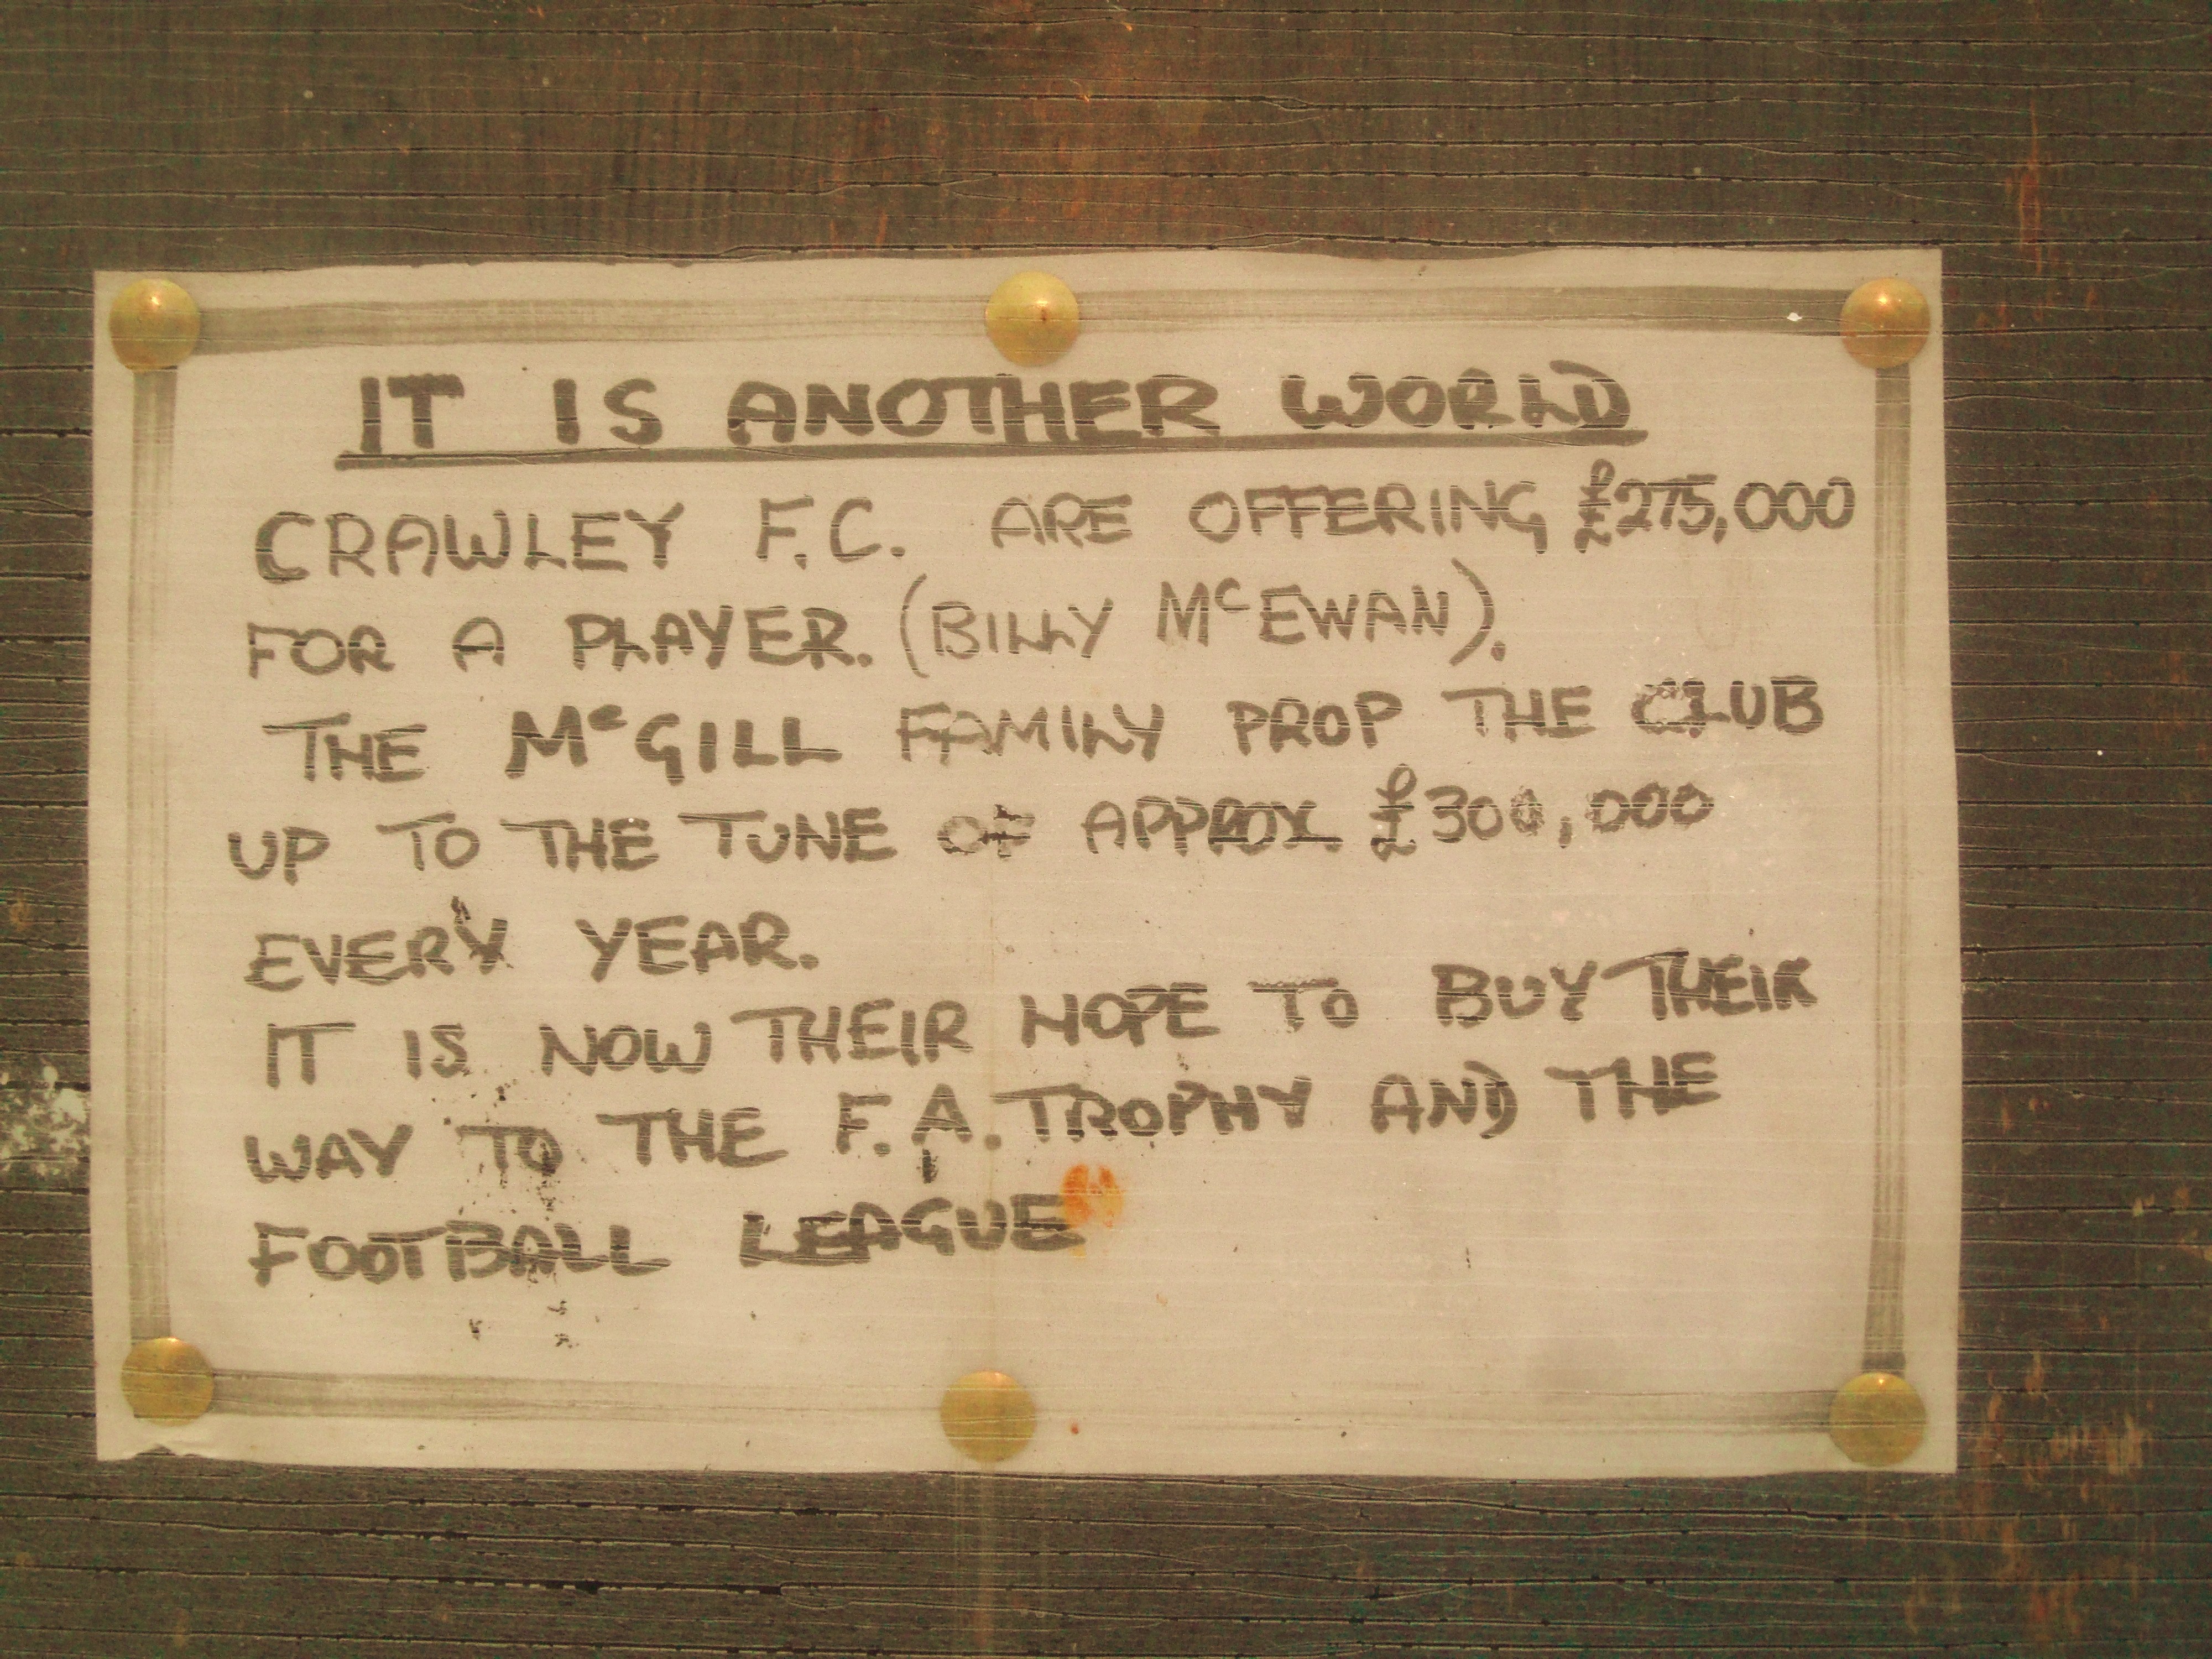 IT IS ANOTHER WORLD
CRAWLEY F.C. ARE OFFERING £275,000
FOR A PLAYER. (BILLY McEWAN).
THE McGILL FAMILY PROP THE CLUB
UP TO THE TUNE OF APPROX. £300,000
EVERY YEAR.
IT IS NOW THEIR HOPE TO BUY THEIR
WAY TO THE F.A. TROPHY AND THE
FOOTBALL LEAGUE